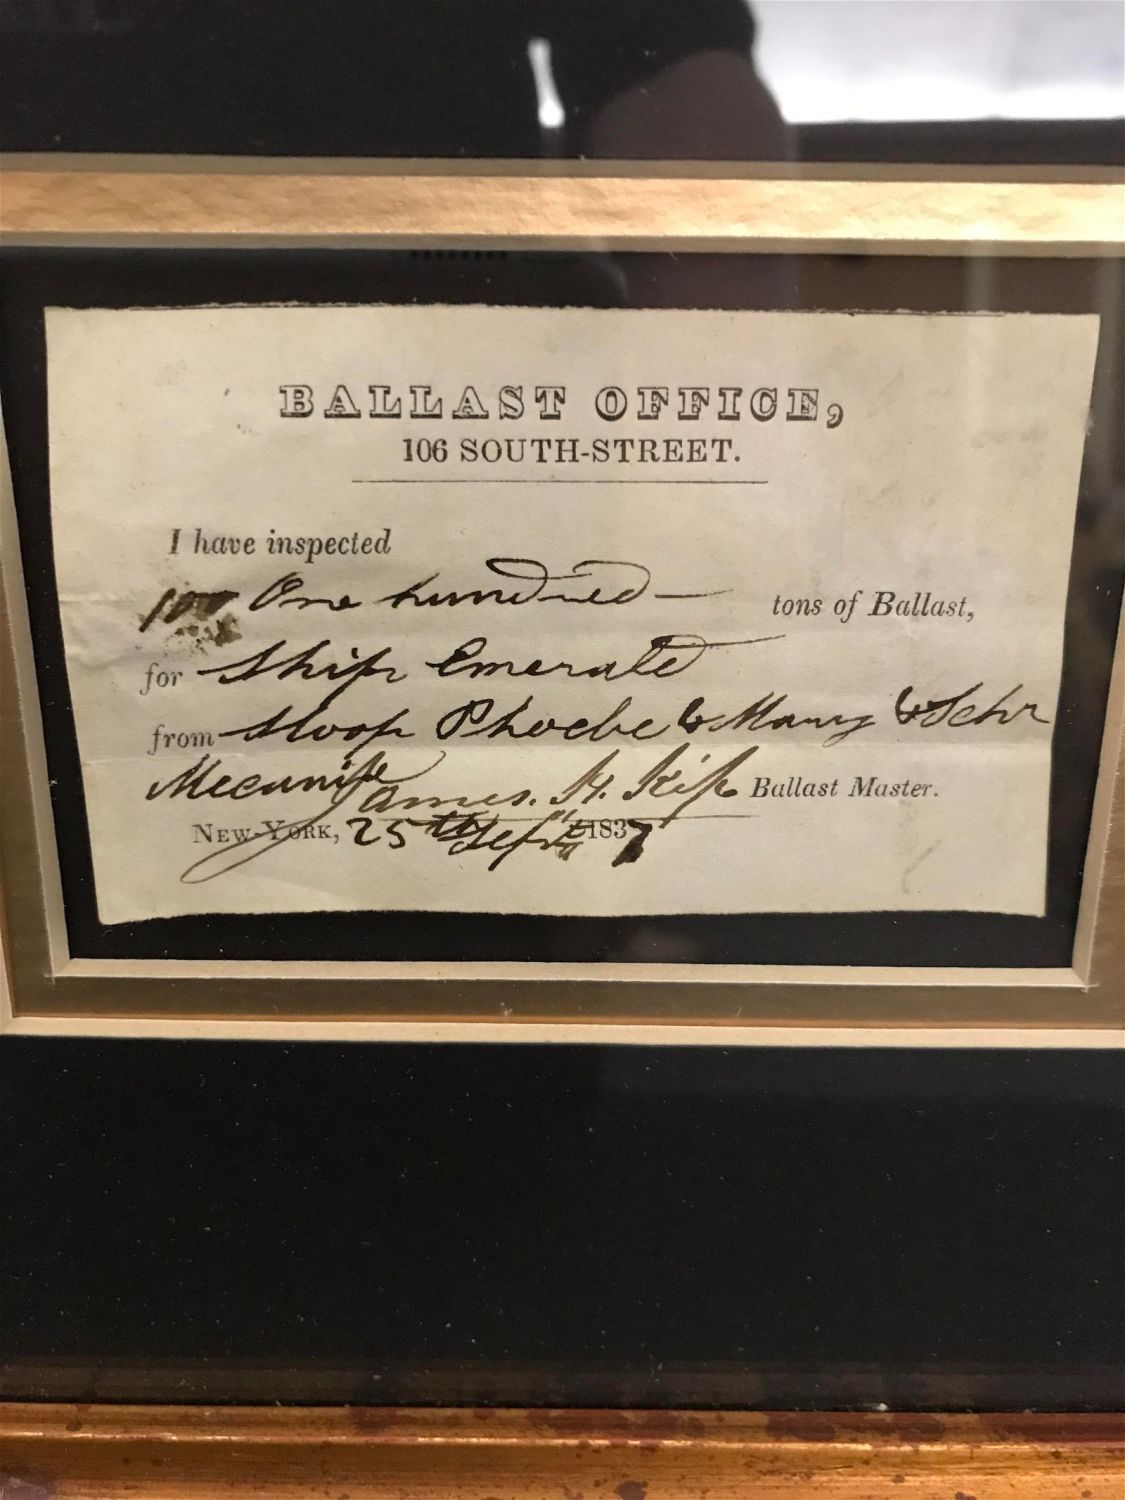 BALLAST OFFICE,
106 SOUTH-STREET.
I have inspected
100 One hundred — tons of Ballast,
for Ship Emerald
from Sloop Phoebe & Mary & Schr
James. H. Kip Ballast Master.
NEW-YORK, 25th Sept 1837